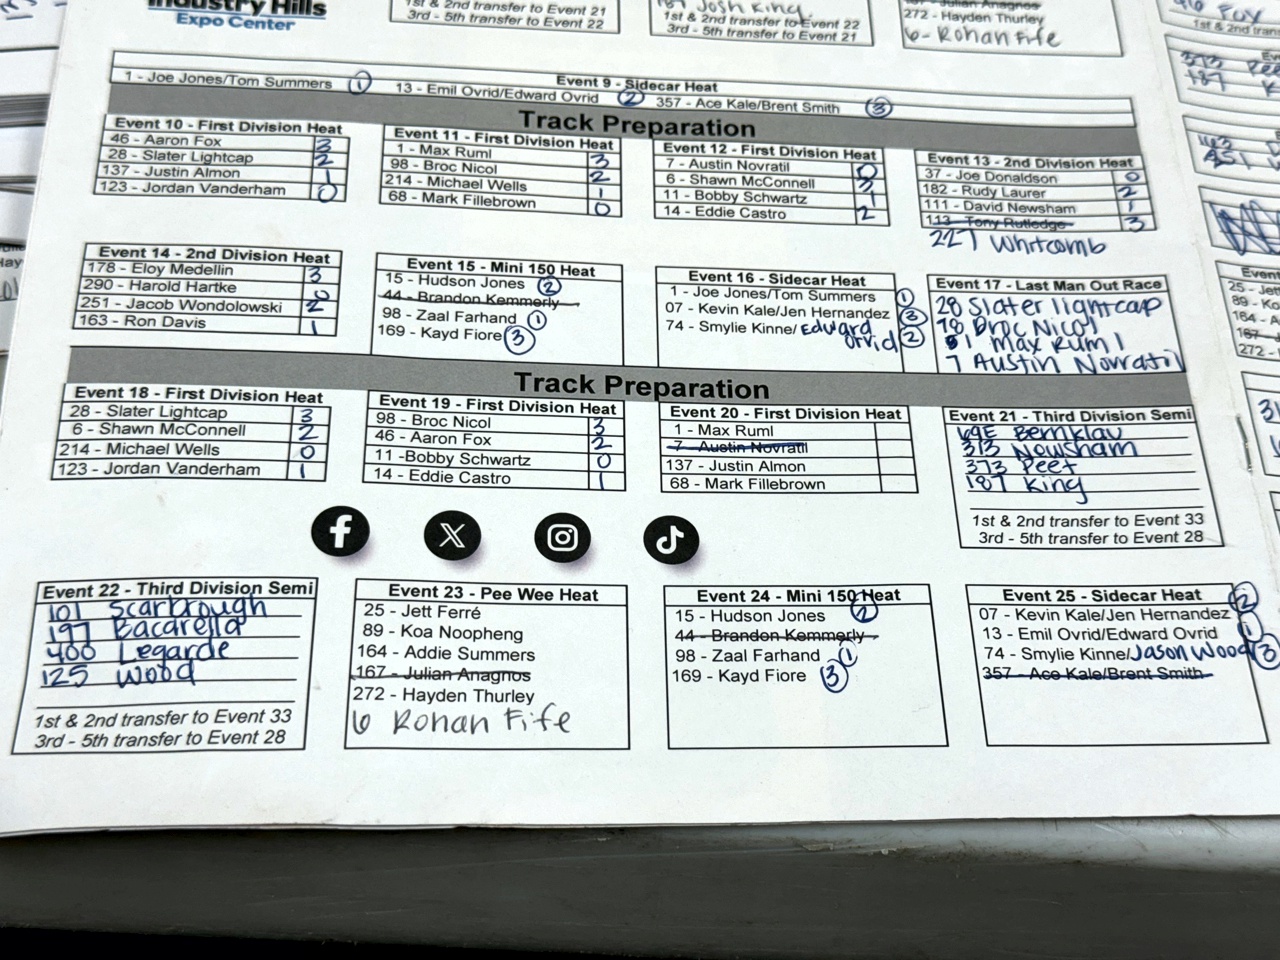 Industry Hills
Expo Center
1st & 2nd transfer to Event 21
3rd - 5th transfer to Event 22
187 Josh King
1st & 2nd transfer to Event 22
3rd - 5th transfer to Event 21
Julian Anagnos
272 - Hayden Thurley
6- Rohan Fife
Event 9 - Sidecar Heat
1 - Joe Jones/Tom Summers 1
13 - Emil Ovrid/Edward Ovrid 2
357 - Ace Kale/Brent Smith 3
Track Preparation
Event 10 - First Division Heat
46 - Aaron Fox 3
28 - Slater Lightcap 2
137 - Justin Almon 1
123 - Jordan Vanderham 0
Event 11 - First Division Heat
1 - Max Ruml 3
98 - Broc Nicol 2
214 - Michael Wells 1
68 - Mark Fillebrown 0
Event 12 - First Division Heat
7 - Austin Novratil 0
6 - Shawn McConnell 3
11 - Bobby Schwartz 1
14 - Eddie Castro 2
Event 13 - 2nd Division Heat
37 - Joe Donaldson 0
182 - Rudy Laurer 2
111 - David Newsham 1
113 - Tony Rutledge 3
227 Whitcomb
Event 14 - 2nd Division Heat
178 - Eloy Medellin 3
290 - Harold Hartke 0
251 - Jacob Wondolowski 2
163 - Ron Davis 1
Event 15 - Mini 150 Heat
15 - Hudson Jones 2
44 - Brandon Kemmerly
98 - Zaal Farhand 1
169 - Kayd Fiore 3
Event 16 - Sidecar Heat
1 - Joe Jones/Tom Summers 1
07 - Kevin Kale/Jen Hernandez 3
74 - Smylie Kinne/ Edward Ovrid 2
Event 17 - Last Man Out Race
28 Slater lightcap
98 Broc Nicol
1 Max Ruml
7 Austin Novratil
Track Preparation
Event 18 - First Division Heat
28 - Slater Lightcap 3
6 - Shawn McConnell 2
214 - Michael Wells 0
123 - Jordan Vanderham 1
Event 19 - First Division Heat
98 - Broc Nicol 3
46 - Aaron Fox 2
11 -Bobby Schwartz 0
14 - Eddie Castro 1
Event 20 - First Division Heat
1 - Max Ruml
7 - Austin Novratil
137 - Justin Almon
68 - Mark Fillebrown
Event 21 - Third Division Semi
69E Bernklau
313 Newsham
373 Peet
187 King
1st & 2nd transfer to Event 33
3rd - 5th transfer to Event 28
Event 22 - Third Division Semi
101 Scarbrough
197 Bacarella
400 Legarde
125 Wood
1st & 2nd transfer to Event 33
3rd - 5th transfer to Event 28
Event 23 - Pee Wee Heat
25 - Jett Ferré
89 - Koa Noopheng
164 - Addie Summers
167 - Julian Anagnos
272 - Hayden Thurley
6 Rohan Fife
Event 24 - Mini 150 Heat
15 - Hudson Jones 2
44 - Brandon Kemmerly
98 - Zaal Farhand 1
169 - Kayd Fiore 3
Event 25 - Sidecar Heat
07 - Kevin Kale/Jen Hernandez 2
13 - Emil Ovrid/Edward Ovrid 1
74 - Smylie Kinne/Jason Wood 3
357 - Ace Kale/Brent Smith